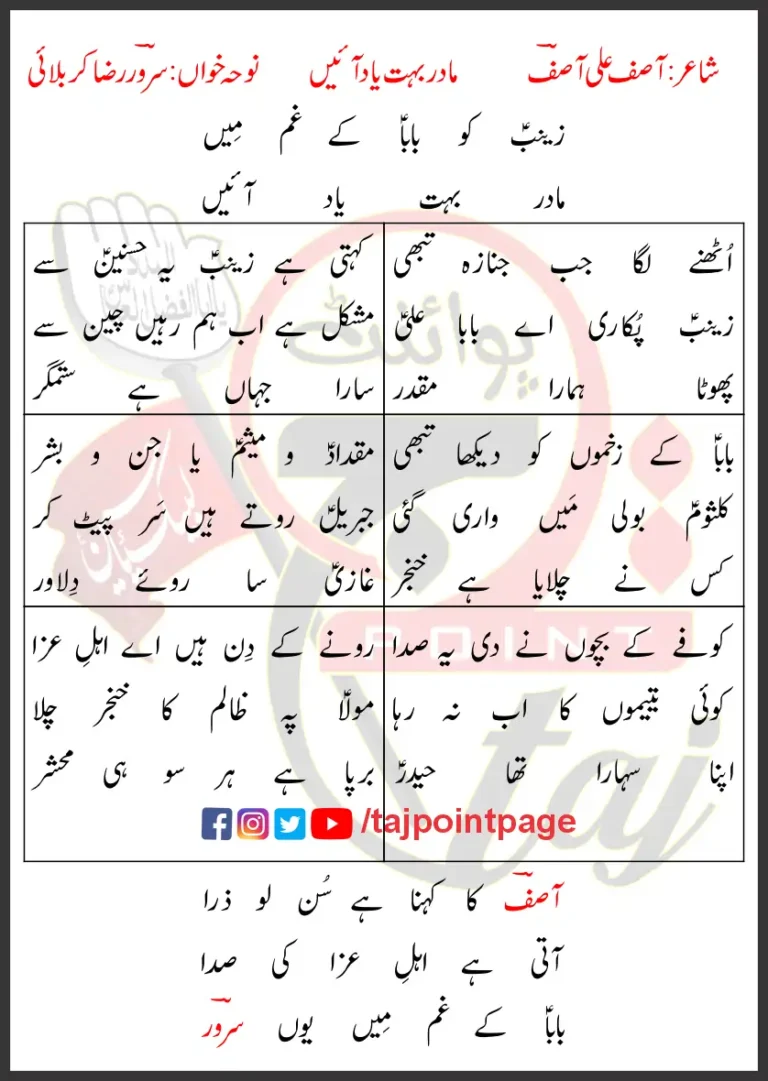 شاعر: آصف علی آصفؔ مادر بہت یاد آئیں نوحہ خواں: سرورؔ رضا کربلائی
زینبؑ کو باباؑ کے غم مِیں
مادر بہت یاد آئیں
اُٹھنے لگا جب جنازہ تبھی
زینبؑ پُکاری اے بابا علیؑ
پھوٹا ہمارا مقدر
کہتی ہے زینبؑ یہ حسنینؑ سے
مشکل ہے اب ہم رہیں چین سے
سارا جہاں ہے ستمگر
باباؑ کے زخموں کو دیکھا تبھی
کلثومؑ بولی مَیں واری گئی
کس نے چلایا ہے خنجر
مقدادؑ و میثمؑ یا جن و بشر
جبریلؑ روتے ہیں سَر پیٹ کر
غازیؑ سا روئے دِلاور
کوفے کے بچوں نے دی یہ صدا
کوئی یتیموں کا اب نہ رہا
اپنا سہارا تھا حیدرؑ
رونے کے دِن ہیں اے اہلِ عزا
مولاؑ پہ ظالم کا خنجر چلا
برپا ہے ہر سو ہی محشر
/tajpointpage
آصفؔ کا کہنا ہے سُن لو ذرا
آتی ہے اہلِ عزا کی صدا
باباؑ کے غم مِیں یوں سرورؔ
پوائنٹ
تاج
POINT
taj